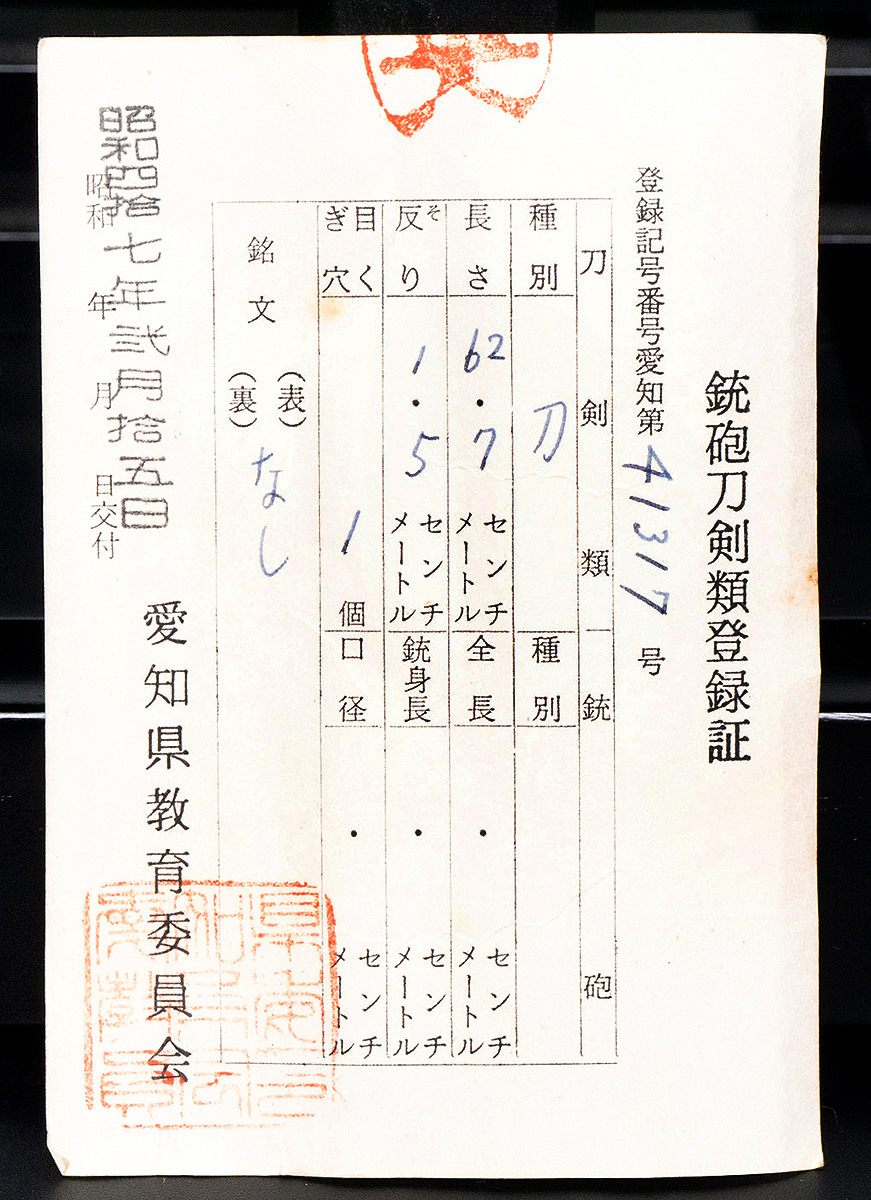 銃砲刀剣類登録証
登録記号番号愛知第41317号
刀剣類
銃砲
種別 刀
長さ 62・7センチメートル
反り そ 1・5センチメートル
目くぎ穴 1個
種別
全長 ・ センチメートル
銃身長 ・ センチメートル
口径 ・ センチメートル
銘文
(表)
(裏)
なし
愛知県教育委員会
昭和四拾七年弐月拾五日
昭和 年 月 日交付